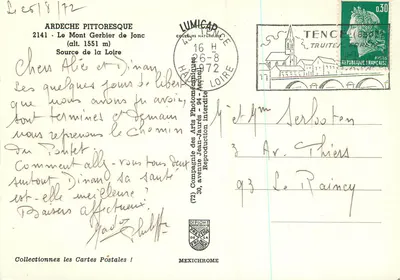 le 25/8/72
ARDECHE PITTORESQUE
2141 - Le Mont Gerbier de Jonc
(alt. 1551 m)
Source de la Loire
Chers Alié et Dinan
Les quelques jours de liberté
que nous avons pu avoir
sont terminés et demain
nous reprenons le chemin
du
Comment allez-vous tous deux
surtout Dinan sa santé
est-elle meilleure?
Baisers affectueux.
Collectionnez les Cartes Postales !
LUMICAP
(72) Compagnie des Arts Photomécaniques
(72) 30, avenue Jean-Jaurès - 94 - Arcueil
Reproduction interdite
MEXICHROME
43
16 H
26-8
1972
HTE LOIRE
TENCE
TRUITES
0,30
REPUBLIQUE FRANÇAISE
M et Mme Serboten
3 Av. Thiers
93 Le Raincy